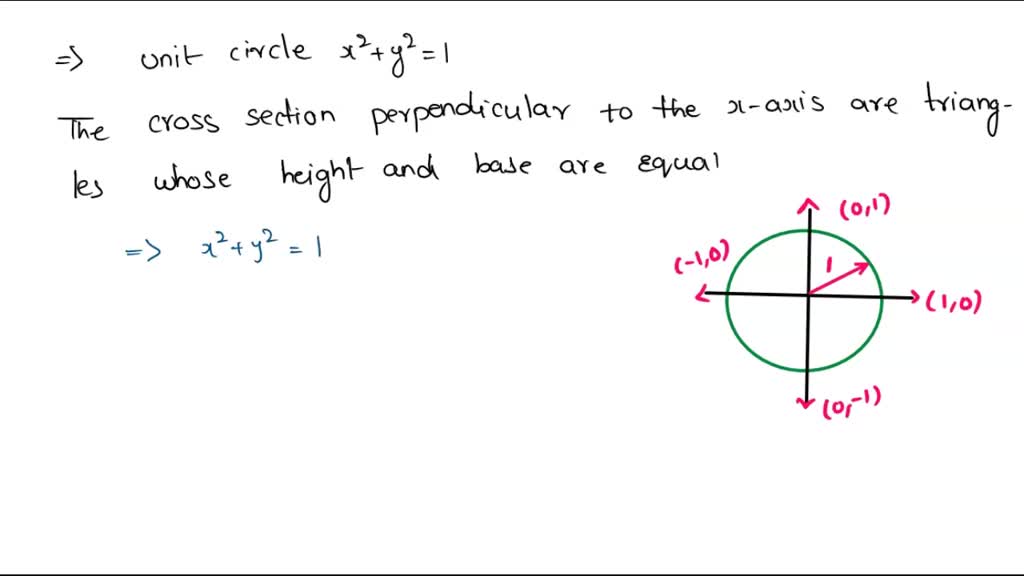 => unit circle x²+y²=1
The cross section perpendicular to the x-axis are triang-
les whose height and base are equal
(0,1)
=> x²+y² = 1
(-1,0)
1
(1,0)
(0,-1)